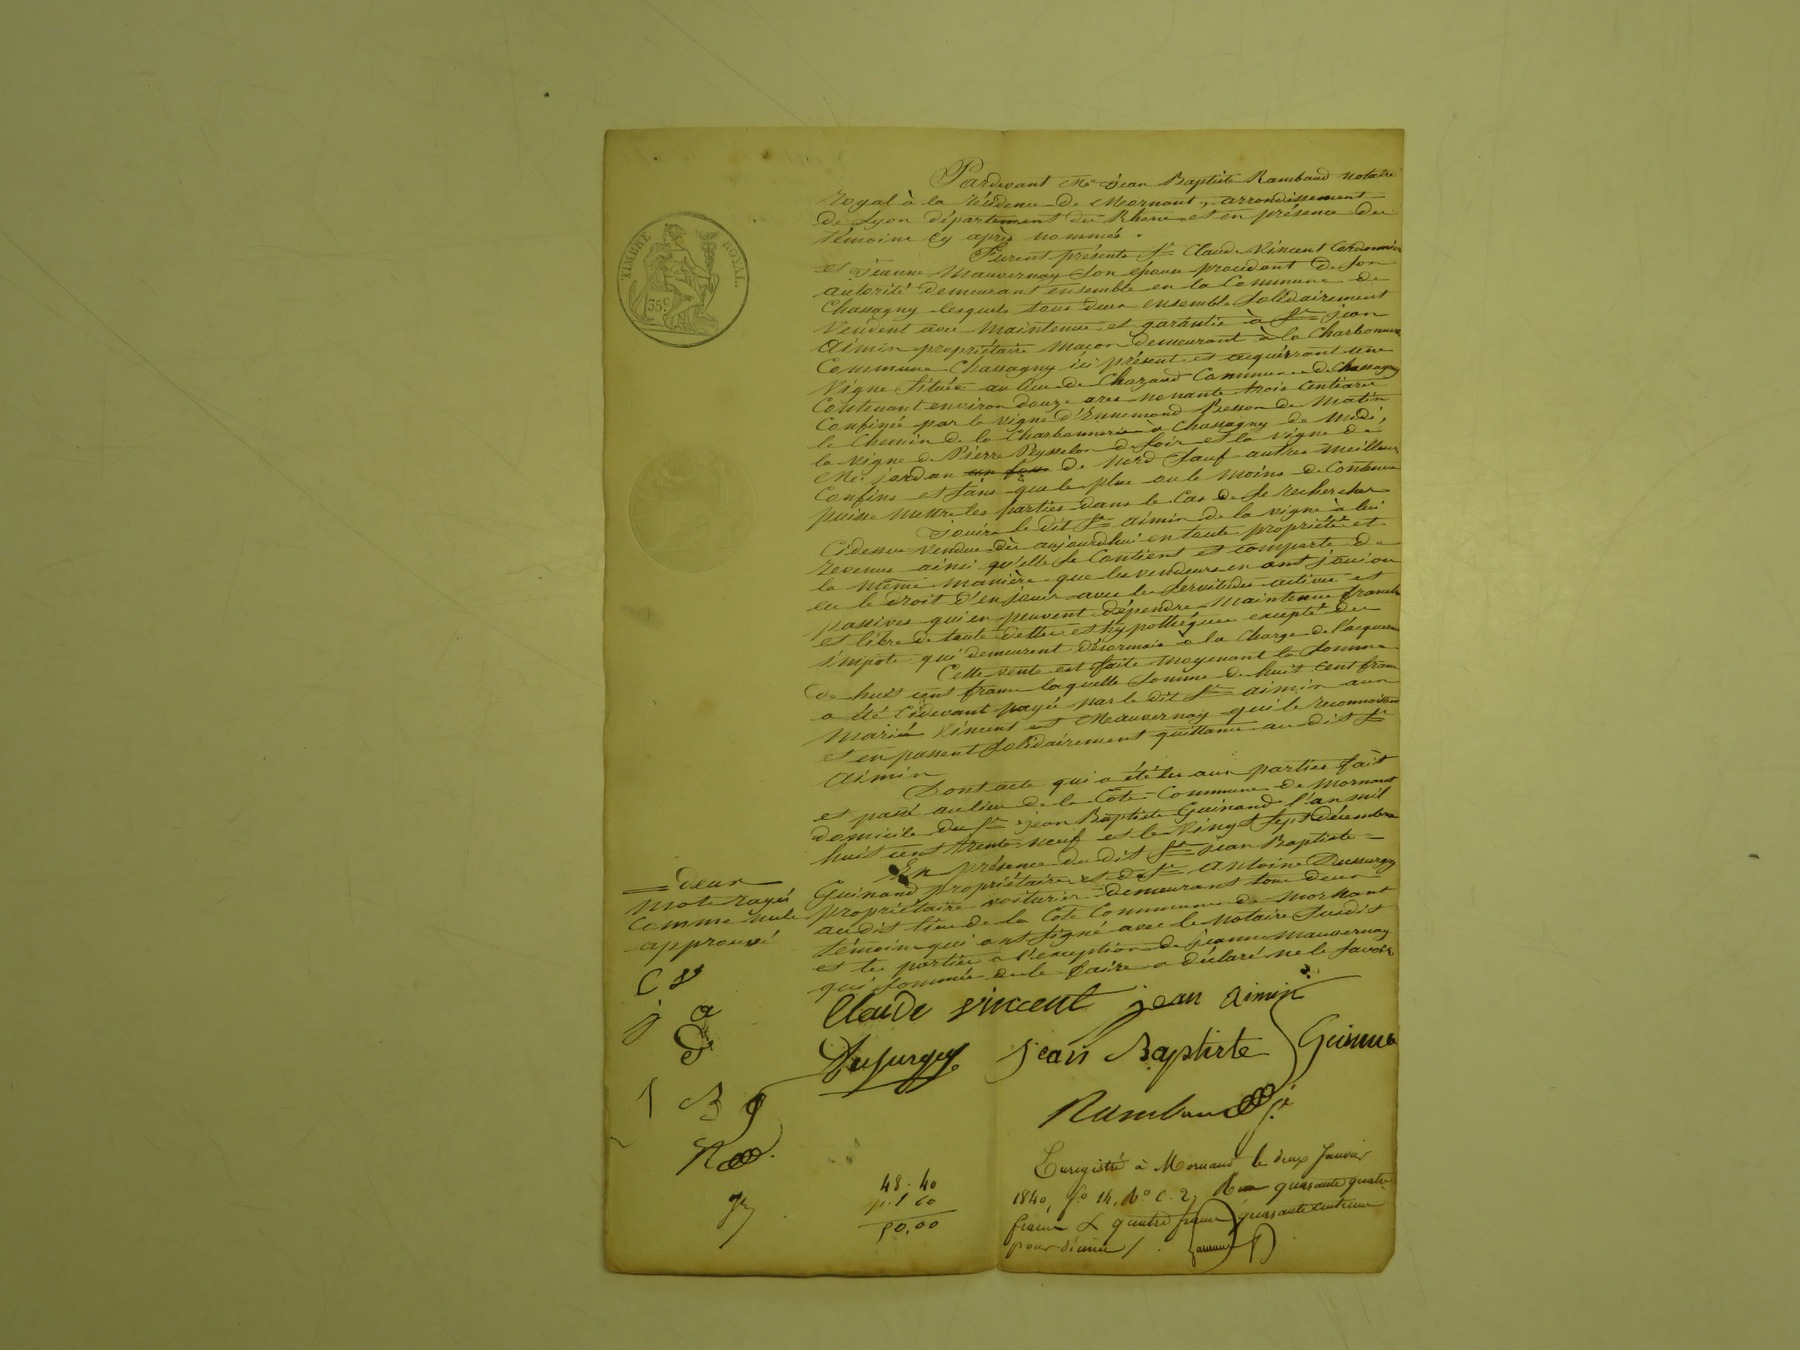 TIMBRE ROYAL.
35c
Pardevant Me Jean Baptiste Rambaud notaire
Royal à la résidence de Mornant, arrondissement
de Lyon département du Rhone et en présence des
témoins cy après nommés.
Furent présents Sr Claude Vincent Cordonnier
et Jeanne Mauvernay son épouse procedant de son
autorité demeurant ensemble en la Commune de
Chassagny lesquels tous deux ensemble solidairement
Vendent avec maintenue et garantie à Sr jean
Aimin propriétaire maçon demeurant à la Charbonnerie
Commune Chassagny ici présent et acquérrant une
Vigne située au lieu de Chazaud Commune de Chassagny
Contenant environ douze ares nonante trois Centiares
Confinée par la vigne d'Ennemond Besson de Matin
le Chemin de la Charbonnerie à Chassagny de Midi,
la vigne de Pierre Rysselon de soir et la vigne de
Me jordan de Nord sauf autres meilleurs
Confins et sans que le plus ou le moins de Contenue
puisse mettre les parties dans le Cas de se rechercher
Jouira le dit Sr Aimin de la vigne à lui
Cidessus vendue dès aujourdhui en toute propriété et
revenus ainsi qu'elle se Contient et comporte de
la même manière que les vendeurs en ont joui ou
eu le droit d'en jouir avec les servitudes actives et
passives qui en peuvent dépendre Maintenue franche
et libre de toute dettes et hypothèques excepté des
impots qui demeurent désormais à la Charge de l'acquereur
Cette vente est faite moyenant la somme
de huit cent francs laquelle somme de huit Cent francs
a été Cidevant payée par le dit Sr Aimin aux
Mariés Vincent et Mauvernay qui le reconnaissent
et en passent solidairement quittance au dit Sr
Aimin
Dont acte qui a été lu aux parties fait
et passé au lieu de la Côte Commune de Mornant
domicile du Sr jean Baptiste Guinand l'an mil
huit cent trente neuf et le Vingt Sept décembre
En présence du dit Sr jean Baptiste
Guinand propriétaire et de Sr Antoine Dussurgey
propriétaire voiturier demeurant tous deux
audit lieu de la Côte Commune de Mornant
témoins qui ont signé avec le Notaire susdit
et les parties à l'exception de jeanne Mauvernay
qui sommée de le faire a déclaré ne le savoir
deux
mots rayés
Comme nuls
approuvé
Claude Vincent jean Aimin
Dusurgey jean Baptiste Guinand
Rambaud
48.40
1.60
50.00
Enregistré à Mornand le deux Janvier
1840, fo 14, Ro C. 2, R quarante quatre
francs & quatre francs quarante centimes
pour dixième